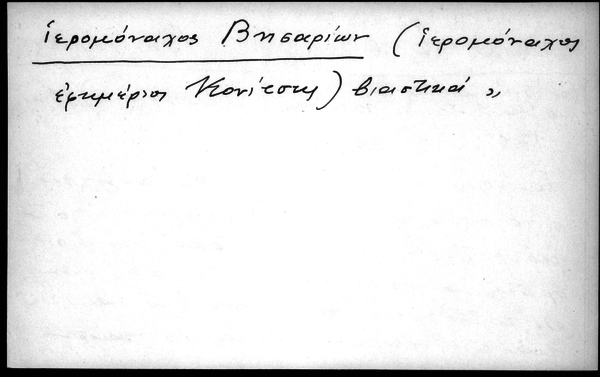 ἱερομόναχος Βησαρίων (ἱερομόναχος
ἐφημέριος Κονίτσης) βιαστικά „